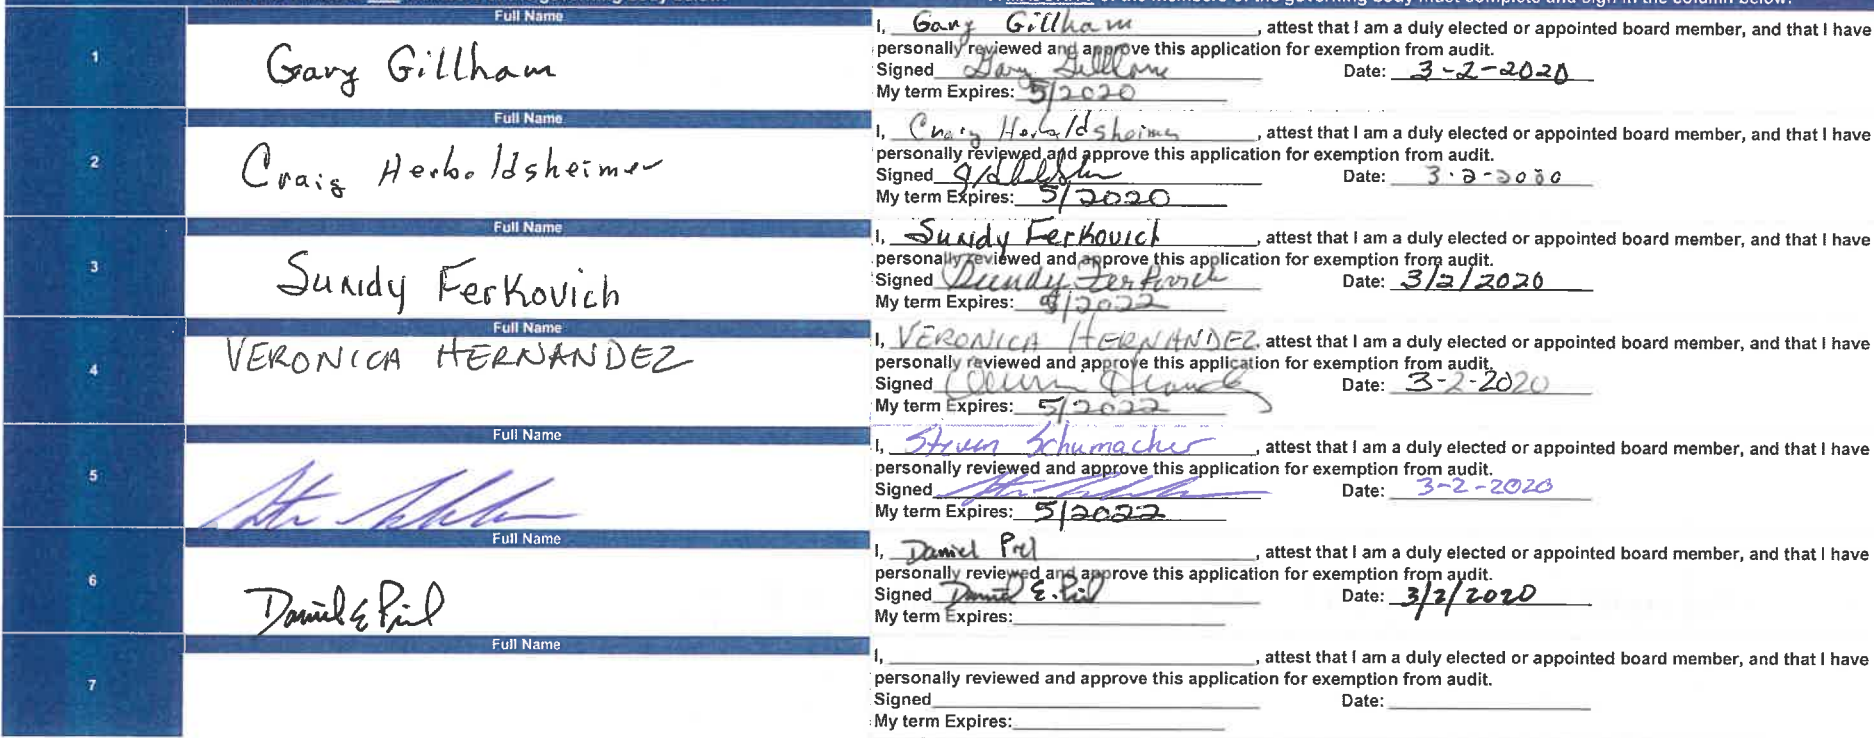 Full Name
1
Gary Gillham
I, Gary Gillham, attest that I am a duly elected or appointed board member, and that I have
personally reviewed and approve this application for exemption from audit.
Signed Gary Gillham Date: 3-2-2020
My term Expires: 5/2020
Full Name
2
Craig Herboldsheimer
I, Craig Herboldsheimer, attest that I am a duly elected or appointed board member, and that I have
personally reviewed and approve this application for exemption from audit.
Signed Date: 3-2-2020
My term Expires: 5/2020
Full Name
3
Sundy Ferkovich
I, Sundy Ferkovich, attest that I am a duly elected or appointed board member, and that I have
personally reviewed and approve this application for exemption from audit.
Signed Sundy Ferkovich Date: 3/2/2020
My term Expires: /2022
Full Name
4
VERONICA HERNANDEZ
I, VERONICA HERNANDEZ, attest that I am a duly elected or appointed board member, and that I have
personally reviewed and approve this application for exemption from audit.
Signed Date: 3-2-2020
My term Expires: 5/2022
Full Name
5
I, Steven Schumacher, attest that I am a duly elected or appointed board member, and that I have
personally reviewed and approve this application for exemption from audit.
Signed Date: 3-2-2020
My term Expires: 5/2022
Full Name
6
Daniel E
I, Daniel, attest that I am a duly elected or appointed board member, and that I have
personally reviewed and approve this application for exemption from audit.
Signed Daniel E. Date: 3/2/2020
My term Expires:
Full Name
7
I, , attest that I am a duly elected or appointed board member, and that I have
personally reviewed and approve this application for exemption from audit.
Signed Date:
My term Expires: